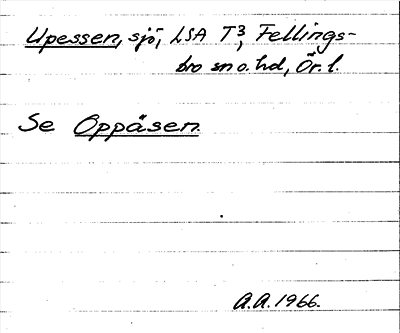 Upessen, sjö, LSA T3, Fellings-
bro sn o. hd, Ör. l.
Se Oppåsen.
A.A. 1966.